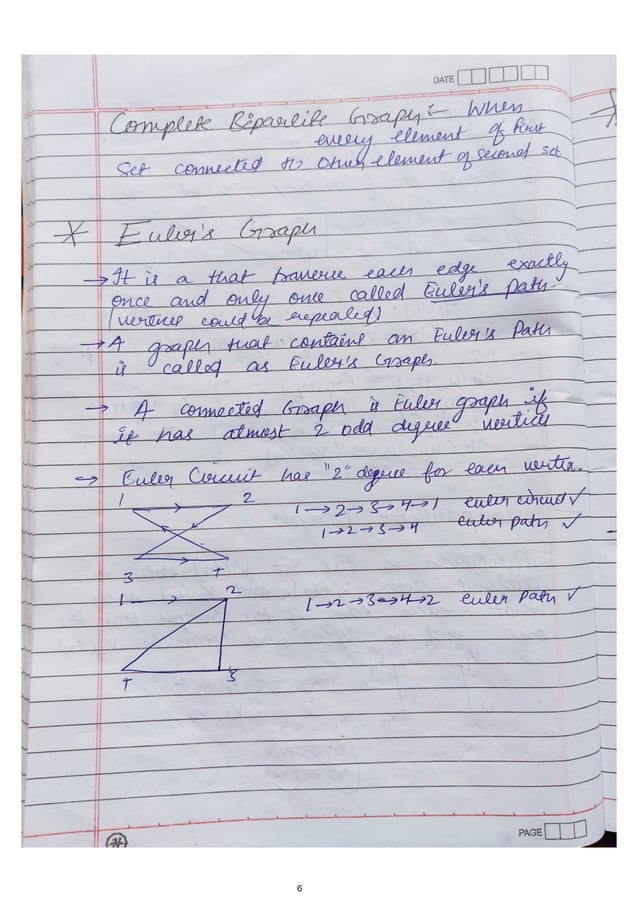 DATE
Complete Biparlite Graph :- When
every element of first
Set connected to other element of second set
* Euler's Graph
→ It is a that traverse each edge exactly
once and only once called Euler's path.
(vertices could be repealed)
→ A graph that contains an Euler's Path
is called as Euler's Graph.
→ A connected Graph is Euler graph if
it has almost 2 odd degree vertices
→ Euler Circuit has "2" degree for each vertex.
1 2
1→2→3→4→1 euler circuit ✓
1→2→3→4 euler path ✓
3 4
1 2
1→2→3→4→2 euler path ✓
4 3
PAGE
6